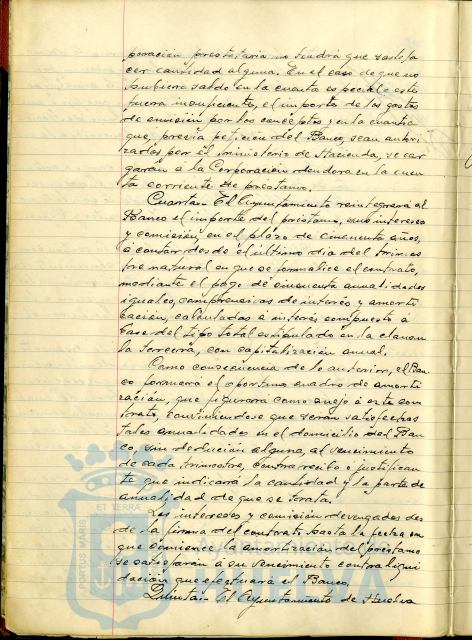 poración prestataria no tendrá que satisfa
cer cantidad alguna. En el caso de que no
hubiera saldo en la cuenta especial o este
fuera insuficiente, el importe de los gastos
de emisión por los conceptos y en la cuantía
que, previa petición del Banco, sean autori
zados por el Ministerio de Hacienda, se car
garán a la Corporación deudora en la cuen
ta corriente de préstamo.
Cuarta.- El Ayuntamiento reintegrará al
Banco el importe del préstamo, sus intereses
y comisión, en el plazo de cincuenta años,
a contar desde el último día del trimes
tre natural en que se formalice el contrato,
mediante el pago de cincuenta anualidades
iguales, comprensivas de interés y amorti
zación, calculadas a interés compuesto a
base del tipo total estipulado en la cláusu
la tercera, con capitalización anual.
Como consecuencia de lo anterior, el Ban
co formará el oportuno cuadro de amorti
zación, que figurará como anejo a este con
trato, conviniéndose que serán satisfechas
tales anualidades en el domicilio del Ban
co, sin deducción alguna, al vencimiento
de cada trimestre, contra recibo o justifican
te que indicará la cantidad y la parte de
anualidad de que se trata.
Los intereses y comisión devengados des
de la firma del contrato hasta la fecha en
que comience la amortización del préstamo
se satisfarán a su vencimiento contra liqui
dación que efectuará el Banco.
Quinta.- El Ayuntamiento de Huelva
PORTUS MARIS ET TERRAE